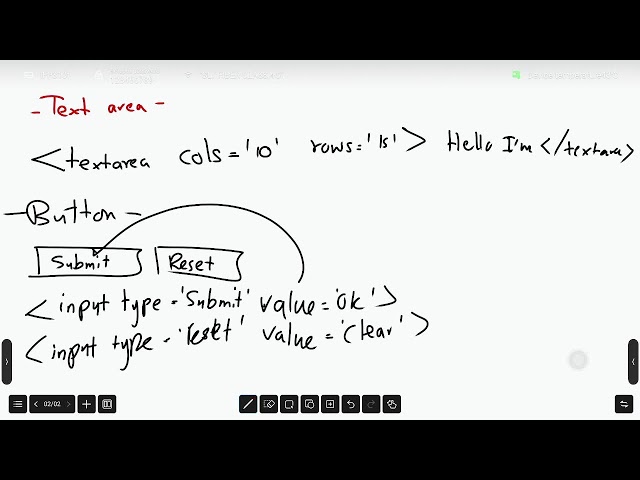 - Text area -
<textarea cols='10' rows='15'> Hello I'm </textarea>
- Button -
Submit Reset
<input type='Submit' value='ok'>
<input type='reset' value='Clear'>
02/02